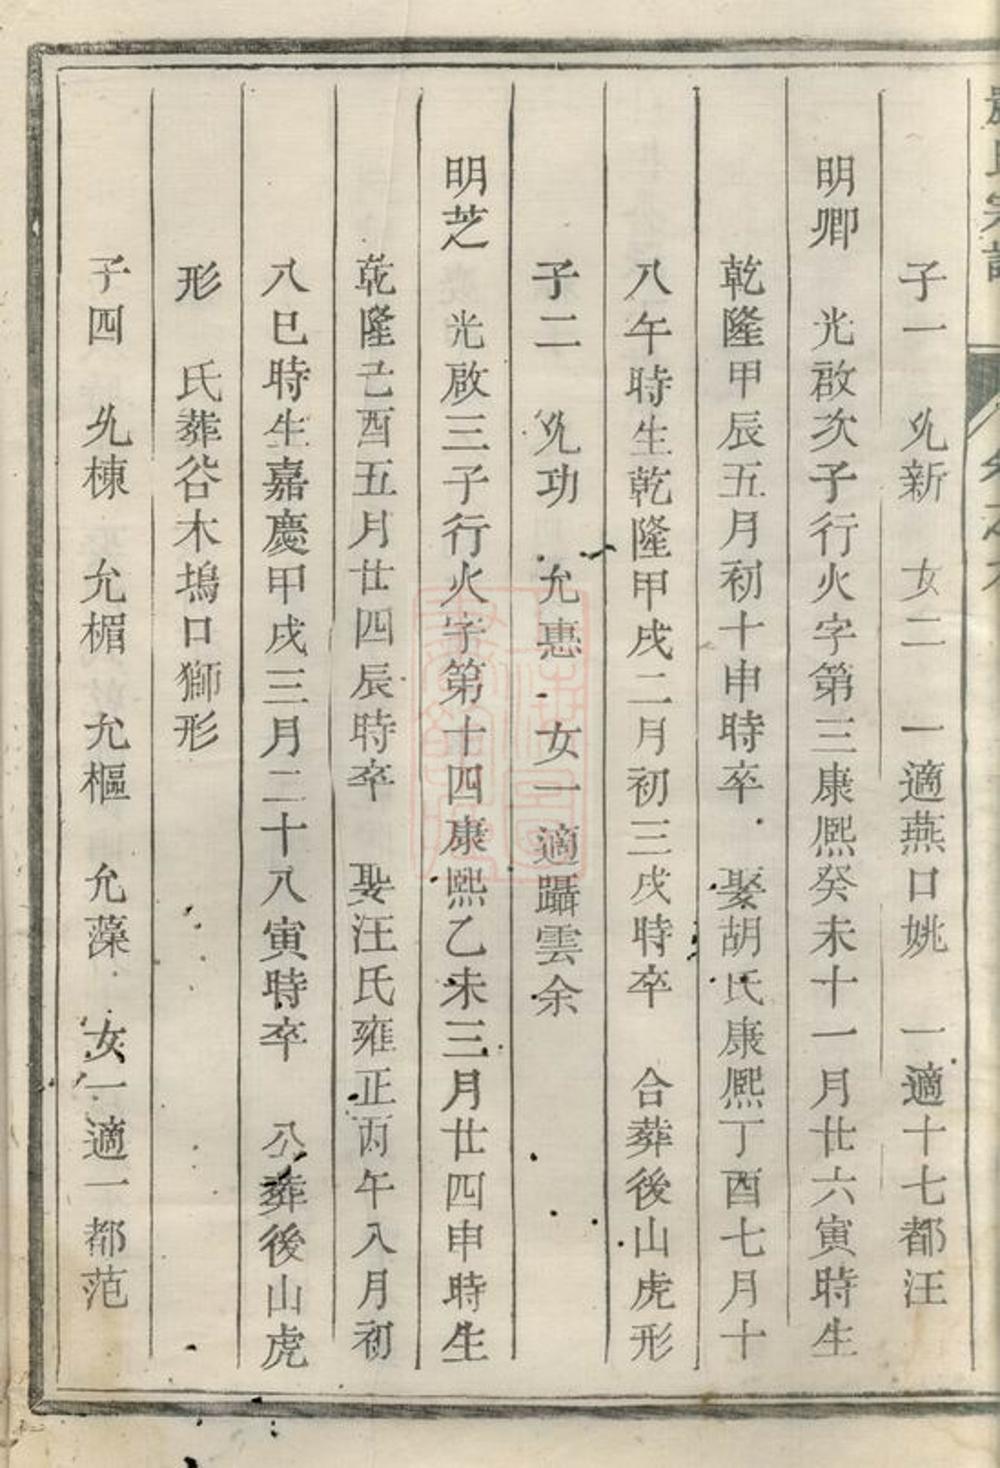 氏宗譜
子一　允新　女二　一適燕口姚　一適十七都汪
明卿　光啟次子行火字第三康熙癸未十一月廿六寅時生
乾隆甲辰五月初十申時卒　娶胡氏康熙丁酉七月十
八午時生乾隆甲戌二月初三戌時卒　合葬後山虎形
子二　允功　允惠　女一　適躡雲余
明芝　光啟三子行火字第十四康熙乙未三月廿四申時生
乾隆己酉五月廿四辰時卒　娶汪氏雍正丙午八月初
八巳時生嘉慶甲戌三月二十八寅時卒　公葬後山虎
形　氏葬谷木塢口獅形
子四　允棟　允楣　允樞　允藻　女一適一都范